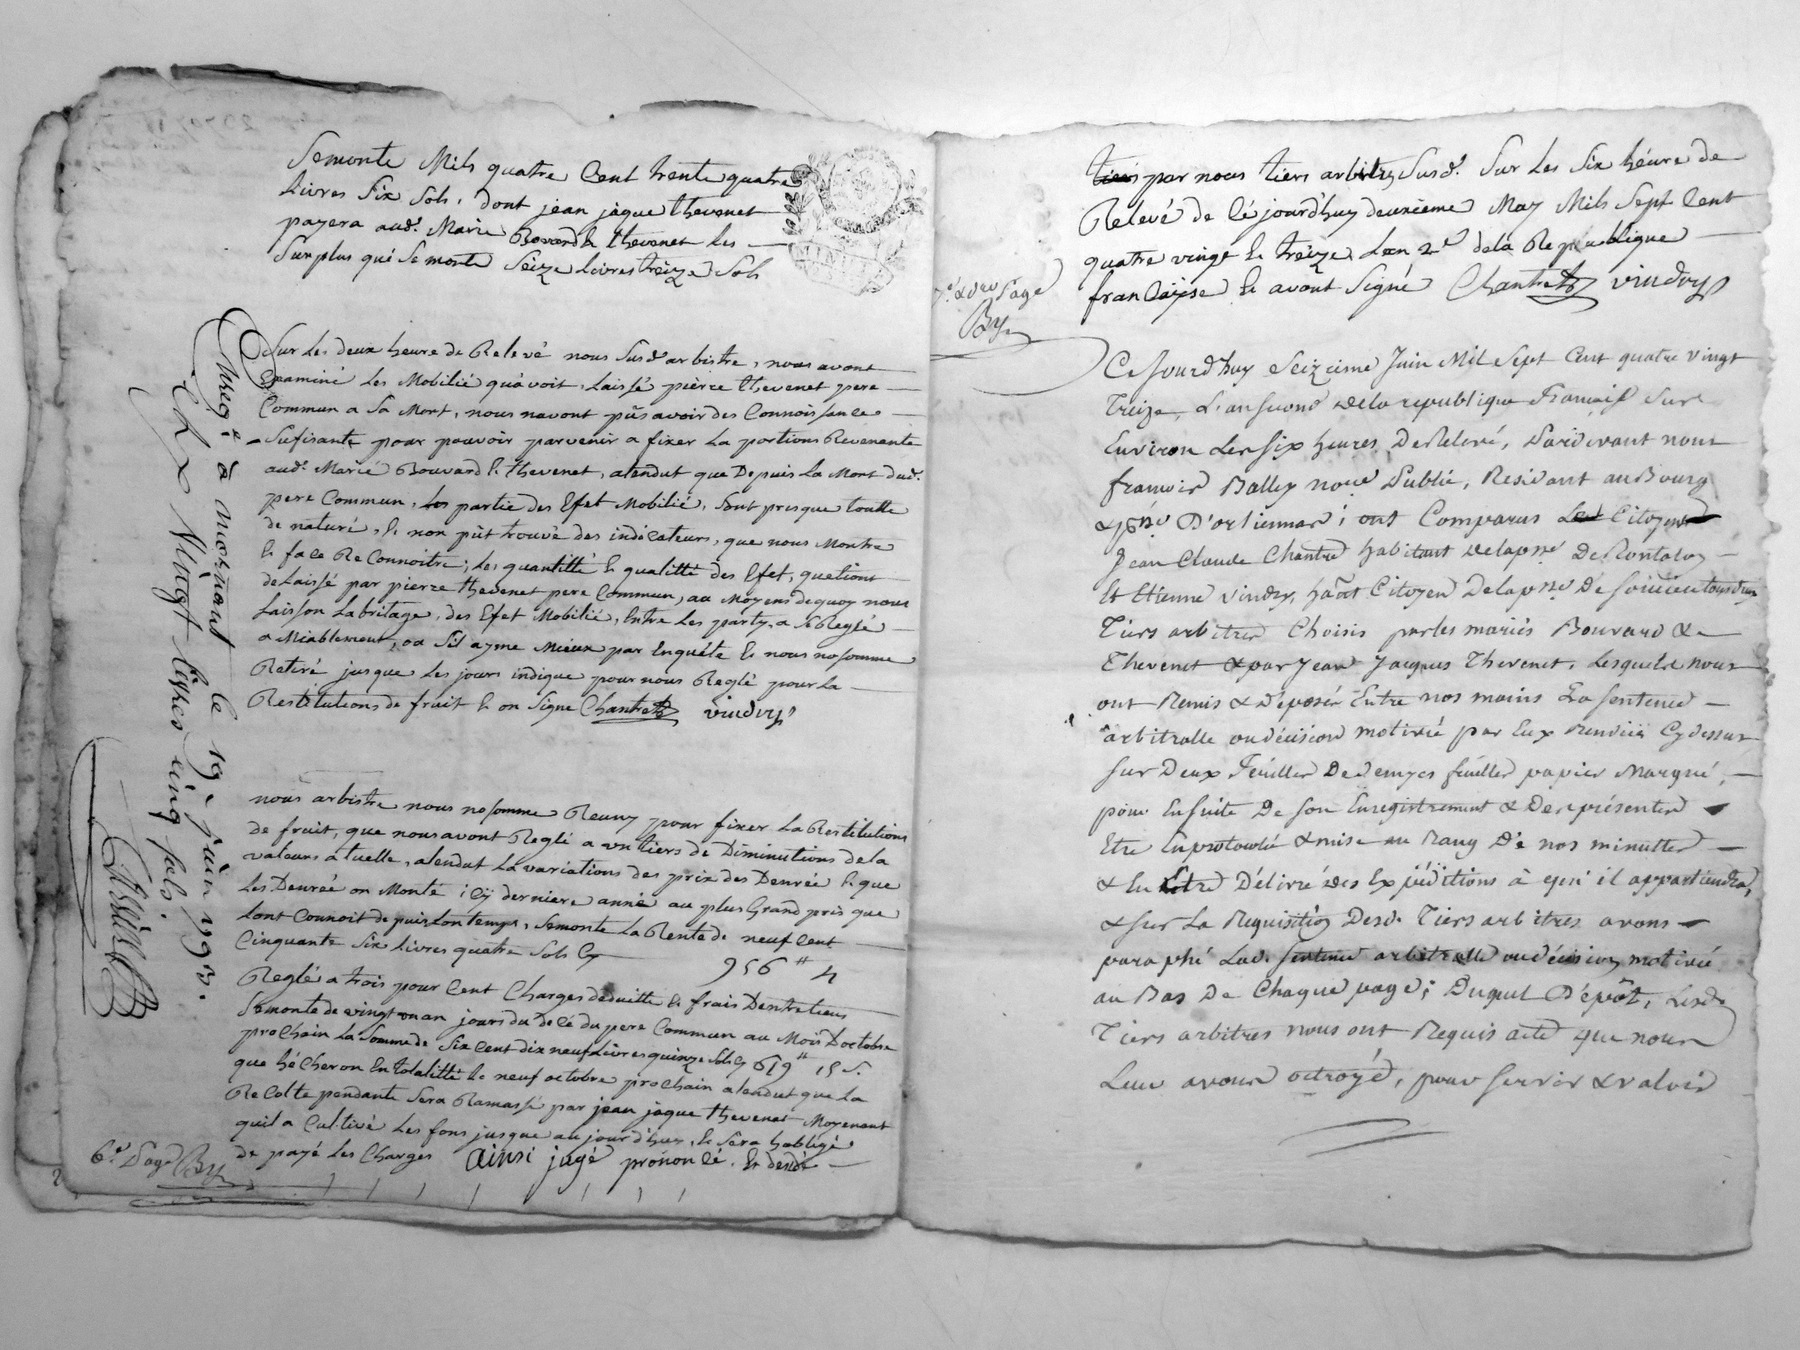 Semonte Mils quatre Cent trente quatre
Livres Six Sols, dont jean jâque thevenet
payera aud. Marie Bovard & thevenet Les
Surplus qui Se monte Seize Livres treize Sols
Sur Les deux heure de Relevé nous Susd. arbistre, nous avont
Examiné Les Mobilié qu'avoit Laissé pierre thevenet pere
Commun a Sa Mort, nous navont pûs avoir des Connoissance
Sufisante pour pouvoir parvenir a fixer La portions Revenante
aud. Marié Bouvard & thevenet, atendut que Depuis La Mort dud.
pere Commun, Les partie des Efet Mobilié, Sont presque toutte
de naturé, & non pût trouvé des indicateurs, que nous Montre
& fase Re Connoitre, Les quantitté & qualitté des Efet, questiont
delaissé par pierre thevenet pere Commun, au Moyens dequoy nous
Laisson Labritage, des Efet Mobilié, Entre Les party a se Reglé
a Miablement, ou S'il ayme Mieux par Enquéte & nous nosomme
Retiré jusque Les jours indique pour nous Reglé pour La
Restitutions de fruit & on Signe Chantre vindry
nous arbistre nous nosomme Reuny pour fixer La Restitutions
de fruit, que nous avont Reglé a un tiers de Diminutions de la
valeurs atuelle, atendut La variations des prix des Denrée & que
Les Denrée on Monté icy derniere annié au plus Grand prix que
Lont Connoit depuis Lontemps, Semonte La Rente de neuf Cent
Cinquante Six Livres quatre Sols Cy 956 ₶ 4
Reglé a trois pour Cent Charges deduitte & frais Dentretiens
Semonte de vingt un an jours du decé du pere Commun au Mois Doctobre
prochain La Somme de Six Cent dix neuf Livres quinze Sols Cy 619 ₶ 15 S.
que hécheron En totalitté Le neuf octobre prochain atendut que La
Recolte pendante Sera Ramassé par jean jâque thevenet Moyenant
quil a Cultivé Les fons jusque aujourd'huy, & Sera habligé
de payé Les Charges ainsi jugé prononcé. Et desidé
6.e Page By
Enreg.é à Mornant le 19e juin 1793.
Vingt livres cinq sols.
tiers par nous tiers arbitres Susd. Sur Les Six héure de
Relevé de Cé jourd'huy deuxieme May Mils Sept Cent
quatre vinge & treize Lan 2e dela Republique
francaise & avont Signé Chantre vindry
7.e & der Page
By
Ce Jourd'huy Seizieme Juin Mil Sept Cent quatre Vingt
Treize, L'an Second de la republique Francaise Sur
Environ Les Six heures De Relevé, Pardevant nous
francois Balley No.re Public, Residant au Bourg
& p.sse D'orliennas; ont Comparus Les Citoyens
Jean Claude Chantre habitant de la p.sse De Rontalon
Et Etienne vindry, ha.nt Citoyen De la p.sse De
Tiers arbitres Choisis par les mariés Bouvard &
Thevenet & par Jean Jacques Thevenet, Lesquels nous
ont Remis & Déposé Entre nos mains La Sentence
arbitralle ou décision motivée par Eux Rendüe Cy dessus
sur Deux Feuilles De demyes feuilles papier Marqué,
pour Ensuite De Son Enregistrement & De représenter
Etre Enprotocolé & mise au Rang De nos minuttes
& En Etre Délivré des Expéditions à qui il appartiendra,
& sur La Requisition Desd. Tiers arbitres avons
paraphé Lad. Sentence arbitralle ou décision motivée
au Bas De Chaque page; Duquel Dépôt, Lesd.
Tiers arbitres nous ont Requis acte que nous
Leur avons octroyé, pour Servir & valoir